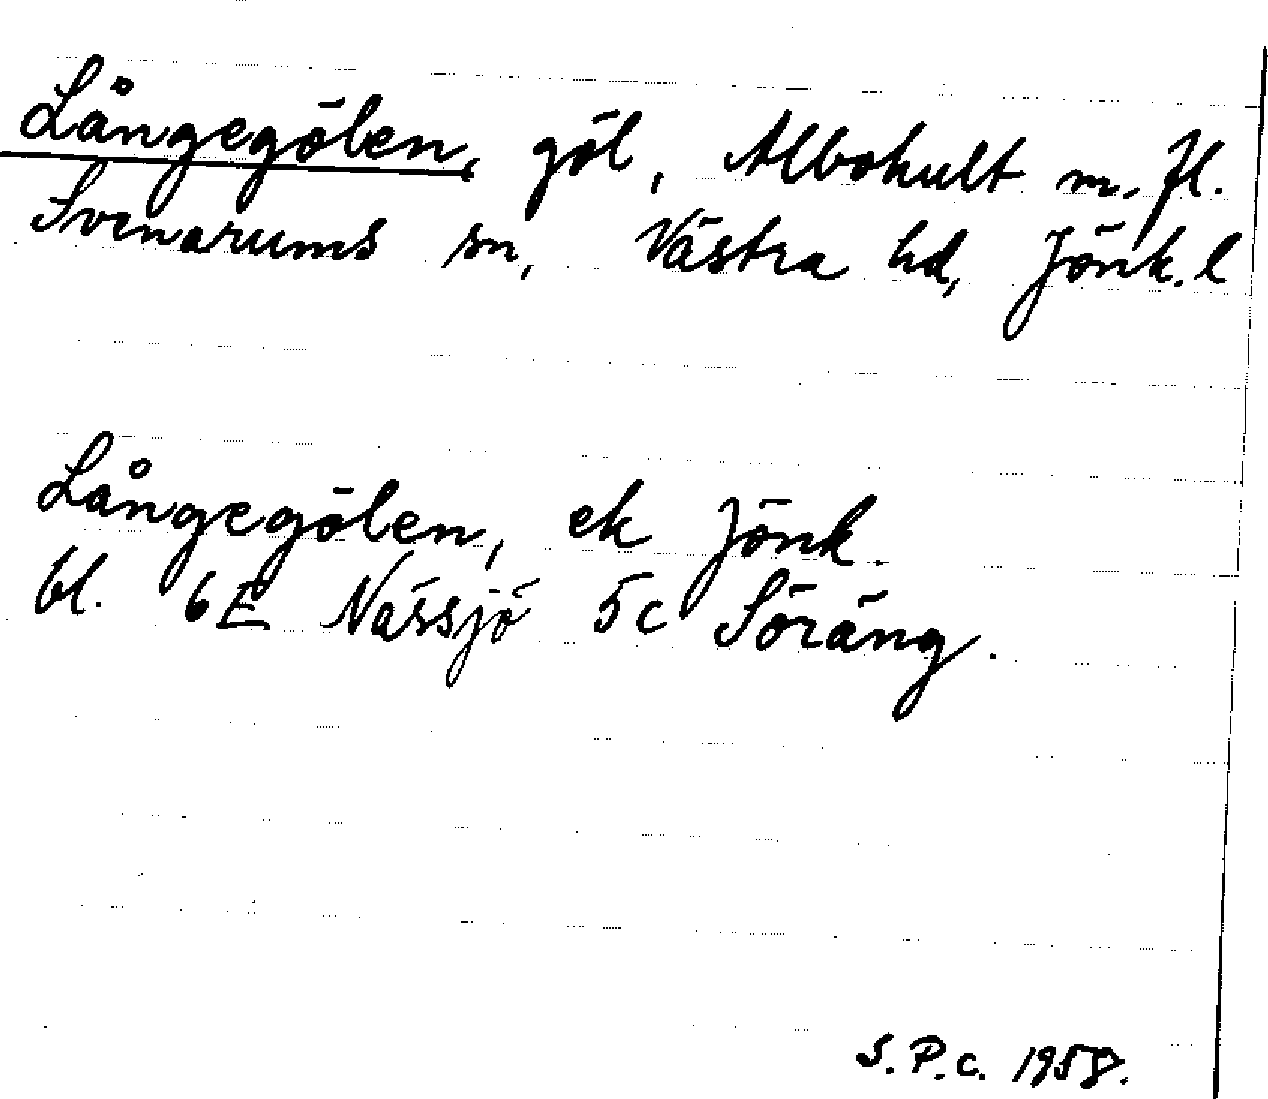 Långegölen, göl, Albohult m. fl.
Svenarums sn, Västra hd, Jönk. l
Långegölen, ek Jönk.
bl. 6E Nässjö 5c Söräng.
S.P.C. 1958.